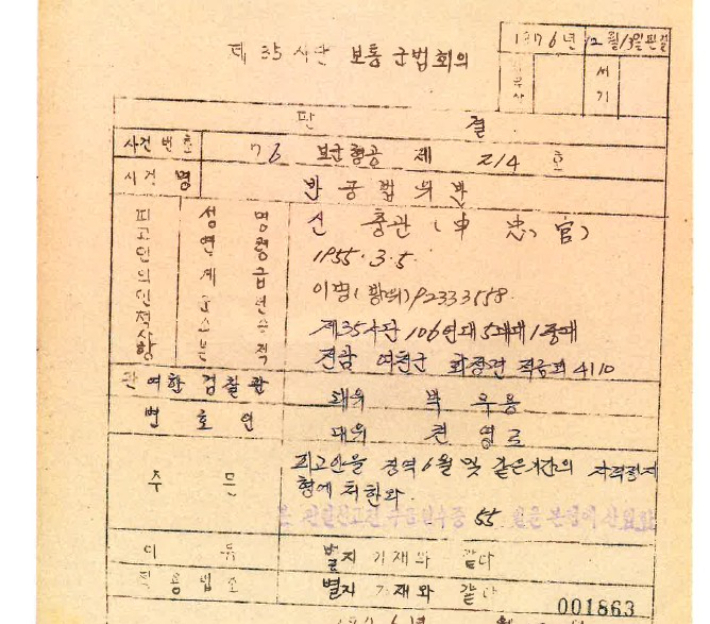 제 35 사단 보통 군법회의
1976년 12월 13일 판결
서기
판 결
사건번호 76 보군형공 제 214 호
사건명 반공법위반
피고인의인적사항
성명 신 충관 (申 忠 官)
연령 1955. 3. 5.
계급 이병(방위) 92333558
소속 제35사단 106연대 5대대 1중대
본적 전남 여천군 화정면 적금리 4110
관여한 검찰관 대위 박 우용
변호인 대위 전 영로
주문 피고인을 징역 6월 및 같은기간의 자격정지
형에 처한다.
본 판결선고전 구금일수중 55 일을 본형에 산입함
이유 별지 기재와 같다
적용법조 별지 기재와 같다
001863